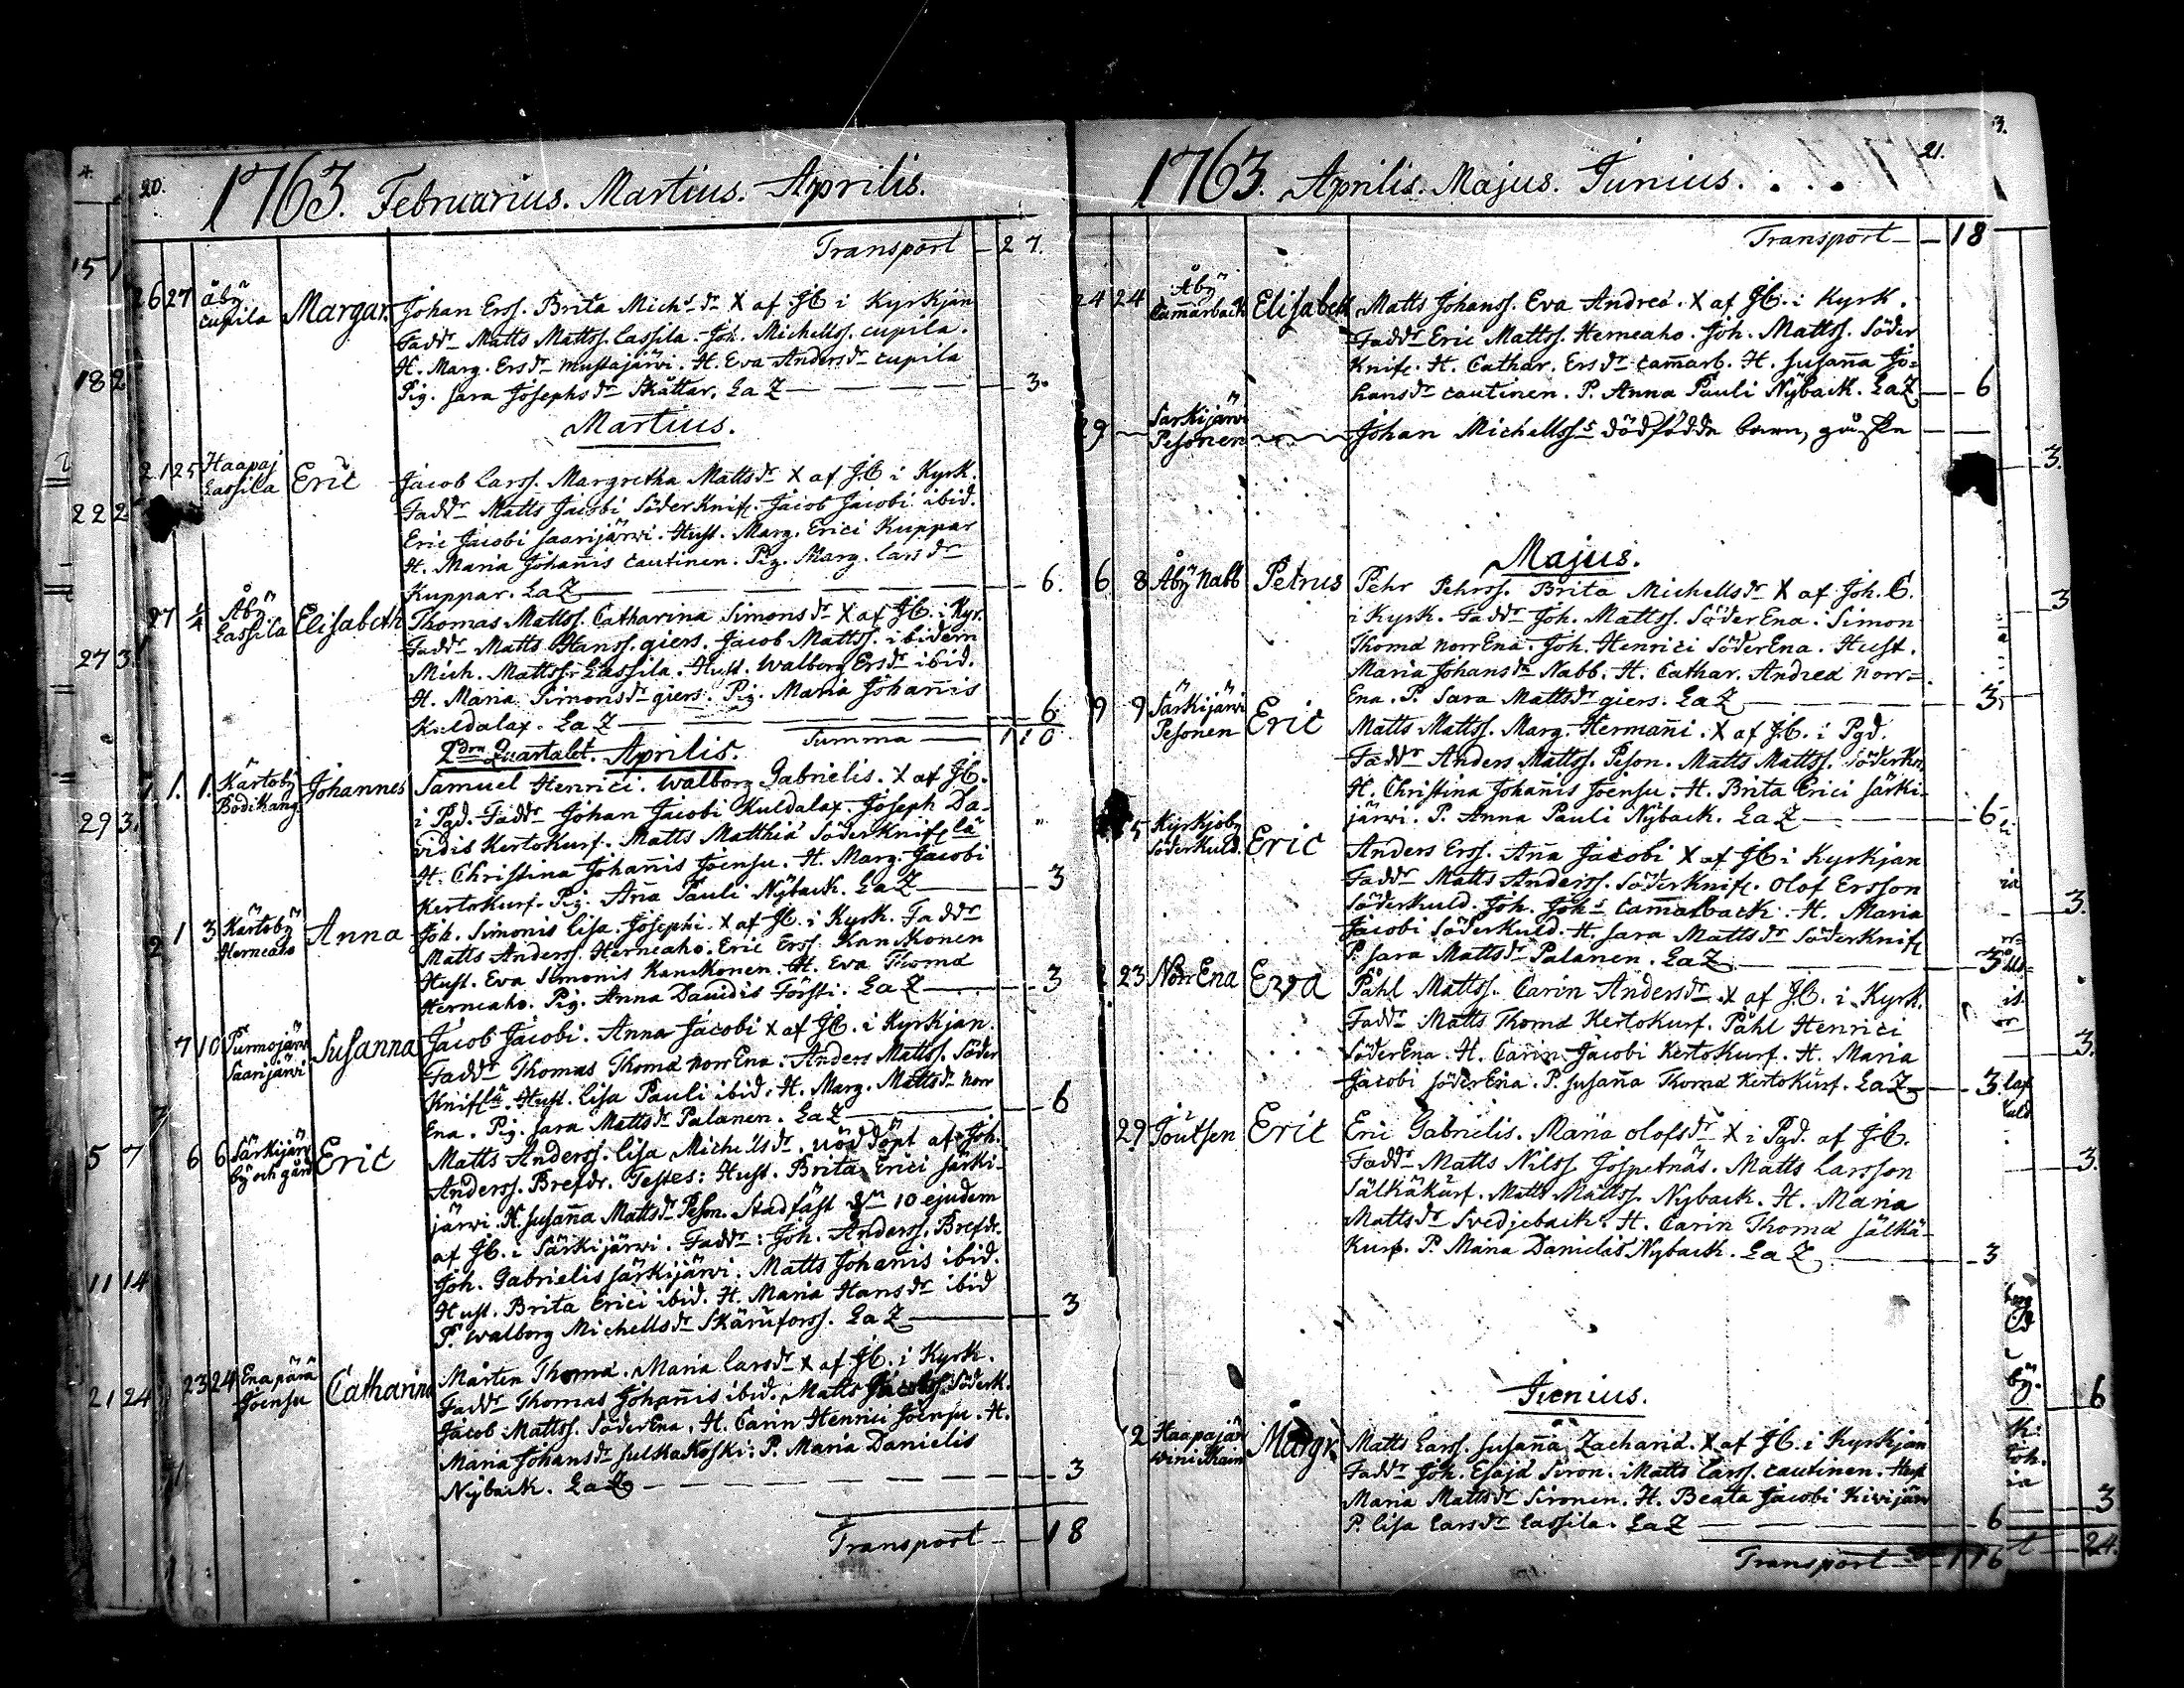 20.
1763. Februarius. Martius. Aprilis.
Transport — 27.
26 27 Åbÿ cupila Margar. Johan Erss. Brita Mich.s dr X af JC i Kyrkjan
Faddr Matts Mattss. Cassila. Joh. Michellss. cupila.
H. Marg. Ersdr mustajärvi. H. Eva Andersdr cupila
Pig. Sara Josephsdr Skåttar. LaZ — 3.
Martius.
21 25 Haapaj Lassila Eric Jacob Larss. Margretha Mattsdr X af JC i Kyrk.
Faddr Matts Jacobi Söder Knif. Jacob Jacobi ibid.
Eric Jacobi Saarijärwi. Hust. Marg. Erici Kuppar
H. Maria Johañis Cautinen. Pig. Marg. Larsdr
Kuppar. LaZ — 6.
27 1/4 Åbÿ Lassila Elisabeth Thomas Mattss. Catharina Simonsdr X af JC. i Kyr.
Faddr Matts Hanss. giers. Jacob Mattss. ibidem
Mich. Mattss. Lassila. Hust. Walborg Ersdr ibid.
H. Maria Simonsdr giers. Pig. Maria Johañis
Kuldalax. LaZ — 6.
Summa — 110
2dra Quartalet. Aprilis.
1. 1. Kärtobÿ Bödikang. Johannes Samuel Henrici. Walborg Gabrielis. X af JC.
i Pgd. Faddr Johan Jacobi Kuldalax. Joseph Da-
vidis Kertokurf. Matts Matthiæ Söder Knif lä
H. Christina Johañis Joensu. H. Marg. Jacobi
Kertokurf. Pig. Aña Pauli Nÿback. LaZ — 3
2 1 3 Kärtobÿ Herneaho Anna Joh. Simonis Lisa Josephi. X af JC. i Kyrk. Faddr
Matts Anderss. Herneaho. Eric Erss. Kanckonen
Hust. Eva Simonis Kanckonen. H. Eva Thomæ
Herneaho. Pig. Anna Davidis Försti. LaZ — 3
7 10 Purmojärw Saarijärwi Susanna Jacob Jacobi. Anna Jacobi X af JC. i Kyrkjan.
Faddr Thomas Thomæ norrEna. Anders Mattss. Söder
Knif lä. Hust. Lisa Pauli ibid. H. Marg. Mattsdr norr
Ena. Pig. Sara Mattsdr Palanen. LaZ — 6
6 6 Särkijärw bÿ och gård Eric Matts Anderss. Lisa Michelsdr. nöddöpt af Joh.
Anderss. Brefdr. Testes: Hust. Brita Erici Särki-
järwi. H. Susaña Mattsdr Peson. Stadfäst dm 10 ejusdem
af JC. i Särkijärwi. Faddr: Joh. Anderss. Brefdr.
Joh. Gabrielis Särkijärwi. Matts Johañis ibid.
Hust. Brita Erici ibid. H. Maria Hansdr ibid
P. Walborg Michellsdr Skäruforss. LaZ — 3
23 24 Enapärä Joensu Catharina Mårten Thomæ. Maria Larsdr X af JC. i Kyrk.
Faddr Thomas Johañis ibid. Matts Jacobss. Söderk.
Jacob Mattss. SöderEna. H. Carin Henrici Joensu. H.
Maria Johansdr Sulkakoski. P. Maria Danielis
Nÿback. LaZ — 3
Transport — 18
21.
1763. Aprilis. Majus. Junius. . . .
Transport — 18
24 24 Åbÿ Cam̃arback Elisabeth Matts Johanss. Eva Andreæ. X af JC. i Kyrk.
Faddr Eric Mattss. Herneaho. Joh. Mattss. Söder
Knif. H. Cathar. Ersdr Cam̃arb. H. Susaña Jo-
hansdr Cautinen. P. Anna Pauli Nÿback. LaZ — 6
29 — Särkijärwi Pesonen — Johan Michellss s dödfödda barn, gåsse —
Majus.
6 8 Åbÿ Nabb Petrus Pehr Pehrss. Brita Michellsdr X af Joh. C.
i Kyrk. Faddr Joh. Mattss. SöderEna. Simon
Thomæ norrEna. Joh. Henrici SöderEna. Hust.
Maria Johansdr Nabb. H. Cathar. Andreæ norr-
Ena. P. Sara Mattsdr giers. LaZ — 3.
9 9 Särkijärwi Pesonen Eric Matts Mattss. Marg. Hermañi. X af JC. i Pgd.
Faddr Anders Mattss. Peson. Matts Mattss. Söderkn.
H. Christina Johañis Joensu. H. Brita Erici Särki-
järwi. P. Anna Pauli Nÿback. LaZ — 6
5 Kyrkjobÿ Söderkuld. Eric Anders Erss. Aña Jacobi X af JC i Kyrkjan
Faddr Matts Anderss. Söderknif. Olof Ersson
Söderkuld. Joh. Johs Cam̃arback. H. Maria
Jacobi Söderkuld. H. Sara Mattsdr Söderknif
P. Sara Mattsdr Palanen. LaZ — 3
23 Norr Ena Eva Påhl Mattss. Carin Andersdr X af JC. i Kyrk.
Faddr Matts Thomæ Kertokurf. Påhl Henrici
SöderEna. H. Carin Jacobi Kertokurf. H. Maria
Jacobi SöderEna. P. Susaña Thomæ Kertokurf. LaZ — 3.
29 Joutsen Eric Eric Gabrielis. Maria Olofsdr X i Pgd. af JC.
Faddr Matts Nilss. Jospetnäs. Matts Larsson
Sälkäkurf. Matts Mattss. Nyback. H. Maria
Mattsdr Svedjeback. H. Carin Thomæ Sälkä-
kurf. P. Maria Danielis Nyback. LaZ — 3
Junius.
2 Haapajär Margr. Matts Larss. Susaña Zachariæ. X af JC. i Kyrkjan
Faddr Joh. Esajæ Siron. Matts Larss. Cautinen. Hust
Maria Mattsdr Sironen. H. Beata Jacobi Kivijärw
P. Lisa Larsdr Lassila. LaZ — 6
Transport —